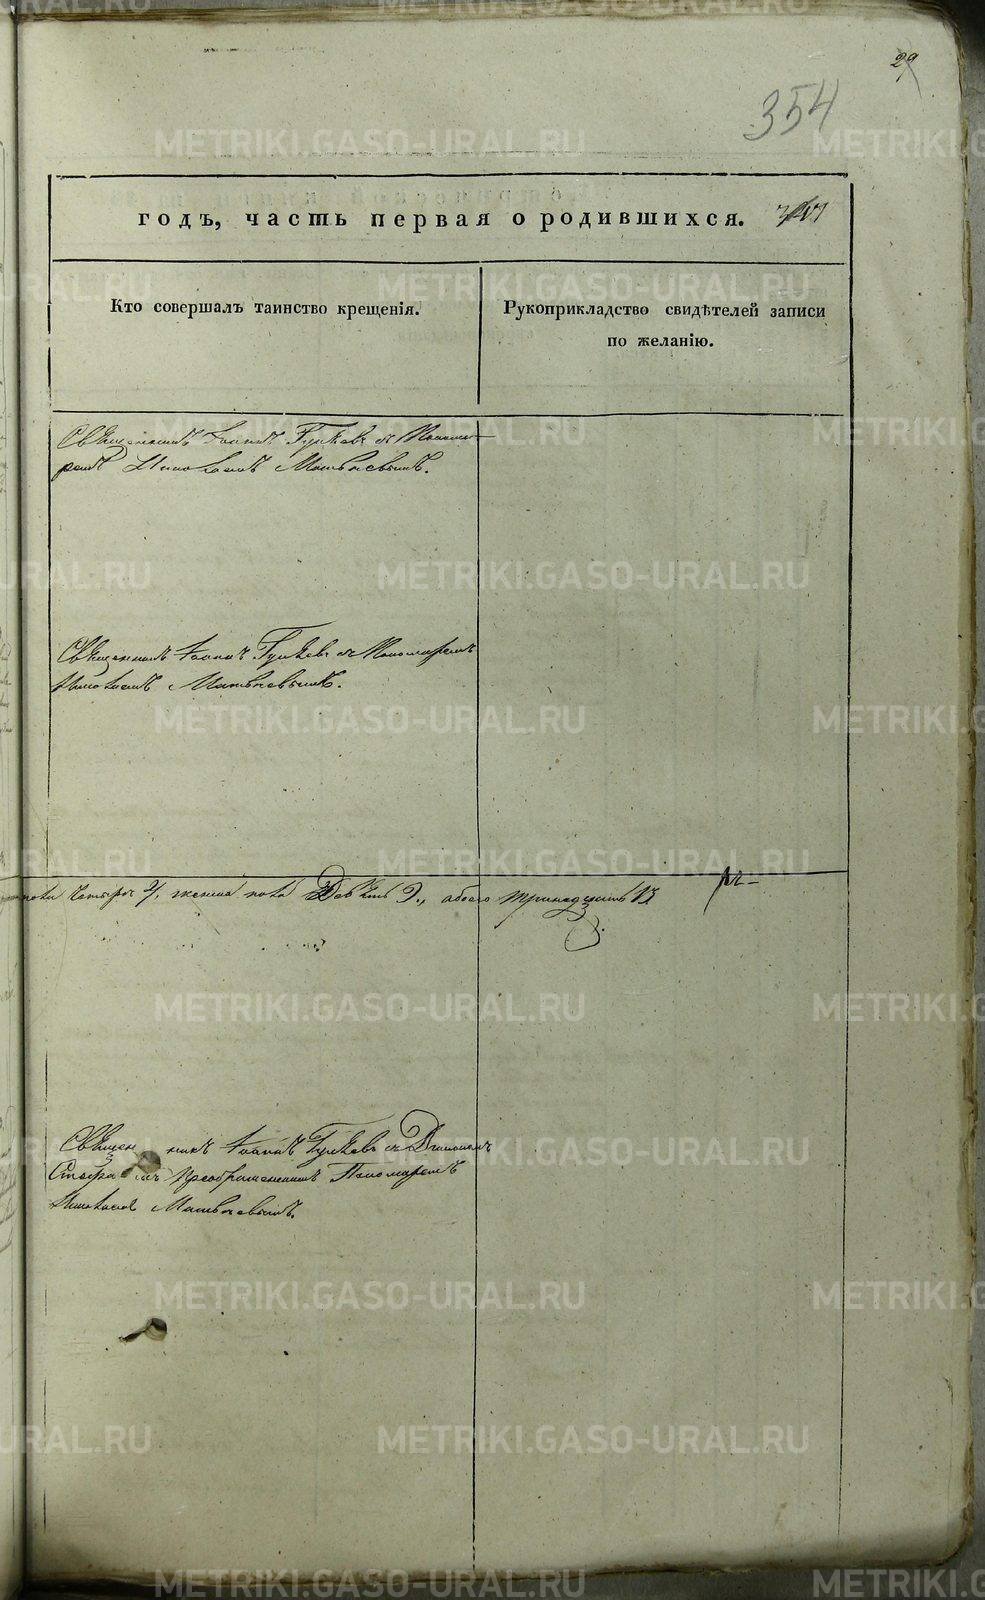 29
354
годъ, часть первая о родившихся.
Кто совершалъ таинство крещенія.
Рукоприкладство свидѣтелей записи
по желанію.
Священникъ Іоаннъ Гуляевъ съ Понома-
ремъ Николаемъ Матвѣевымъ.
Священникъ Іоаннъ Гуляевъ съ Пономаремъ
Николаемъ Матвѣевымъ.
пола четыре 4, женска пола Девять 9, обоего тринадцать 13
Священникъ Іоаннъ Гуляевъ съ Діакономъ
Преображенскимъ Пономаремъ
Николаемъ Матвѣевымъ.
METRIKI.GASO-URAL.RU